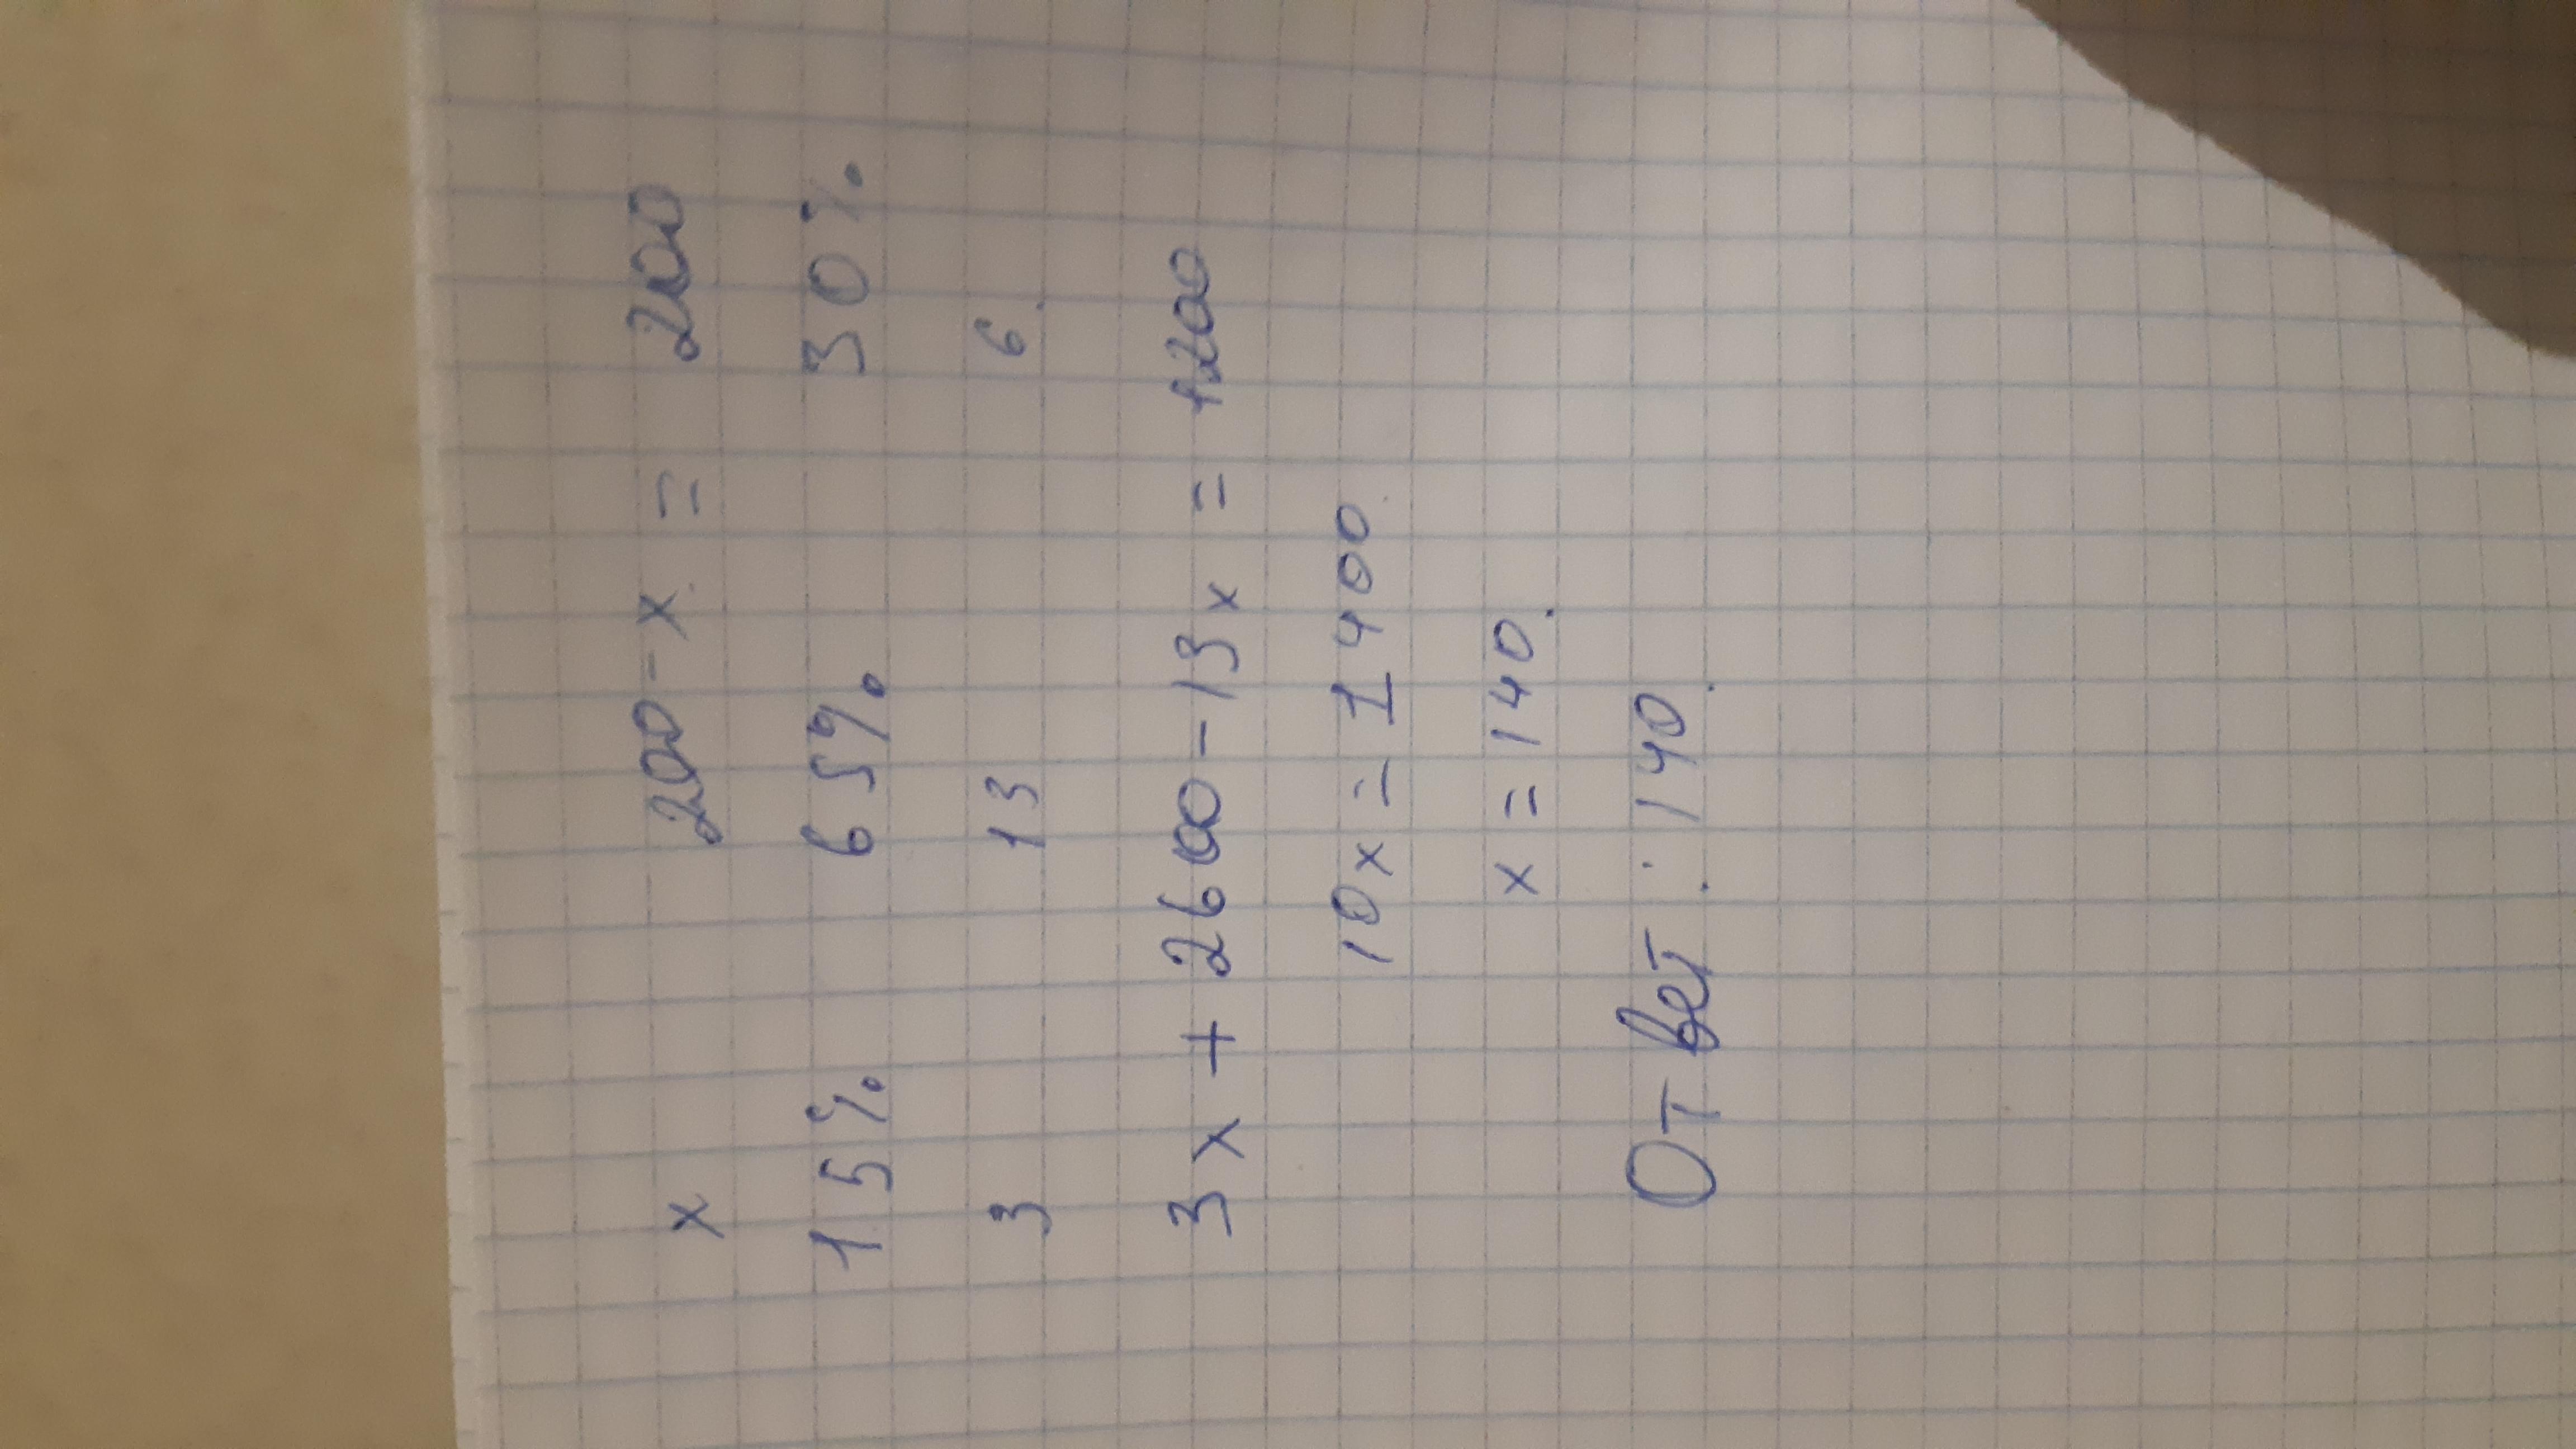 x 200-x = 200
15% 65% 30%
3 13 6.
3x + 2600-13x = 1200
10x = 1400
x = 140.
Ответ: 140.